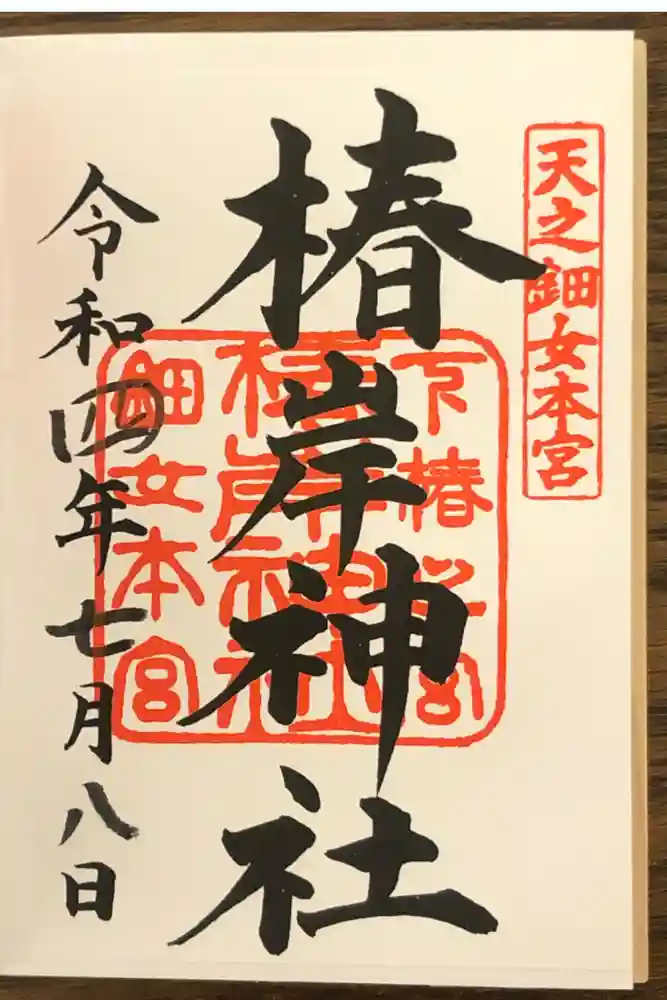 天之鈿女本宮
椿岸神社
下椿之宮
椿岸神社
鈿女本宮
令和四年七月八日